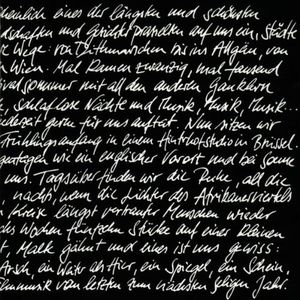 heinlich eines der längsten und schönsten
schaften und Gesichter prasselten auf uns ein, Städte
Wege: von Dithmarschen bis ins Allgäu, von
Wien. Mal kamen zwanzig, mal tausend
sommer mit all den andern Gauklern
, schlaflose Nächte und Musik, Musik, Musik...
jederzeit gern für uns auftat. Nun sitzen wir
Frühlingsanfang in einem Hinterhofstudio in Brüssel.
wie ein englischer Vorort und bei Sonne
uns. Tagsüber finden wir die Ruhe, all die
, nachts, wenn die Lichter des Afrikanerviertels
Kreis längst vertrauter Menschen wieder
Wochen fünfzehn Stücke auf einer kleinen
t. Malk gähnt und eines ist uns gewiss:
Arsch, ein Walter als Hier, ein Spiegel, ein Schein,
filmmusik vom letzten zum nächsten seligen Jahr.